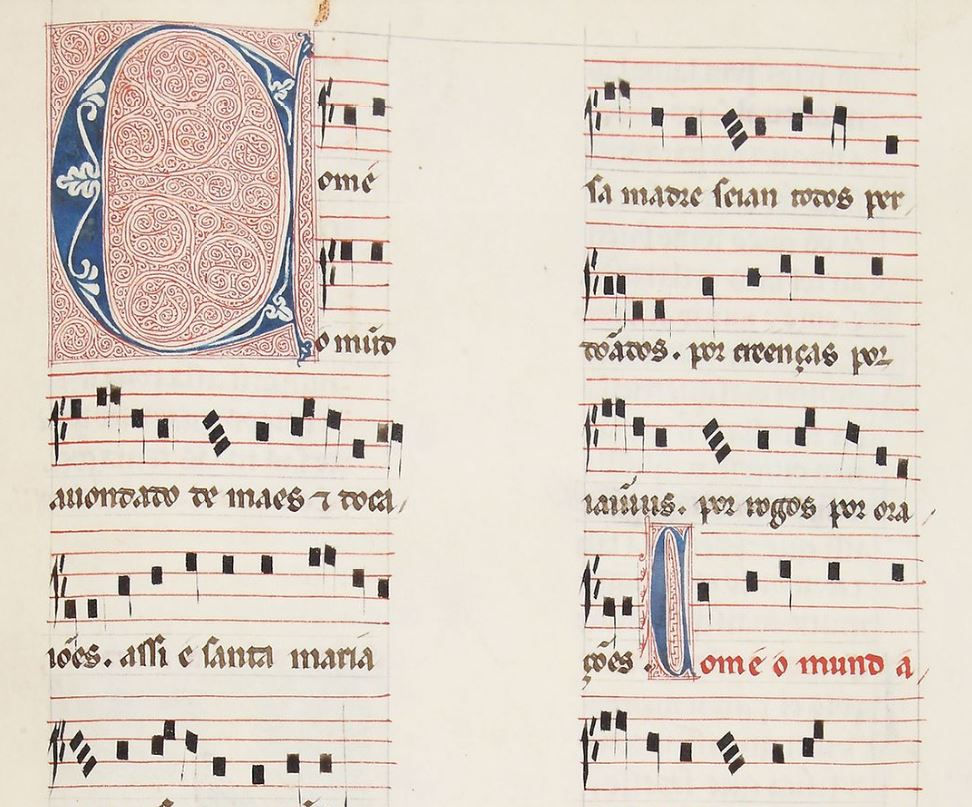 Comé
o mũd
auondado de maes ⁊ doca
iões. assi e santa maria
sa madre seian todos per
dõados. por creenças por
iaiũus. por rogos por ora
ções. Comé o mund a